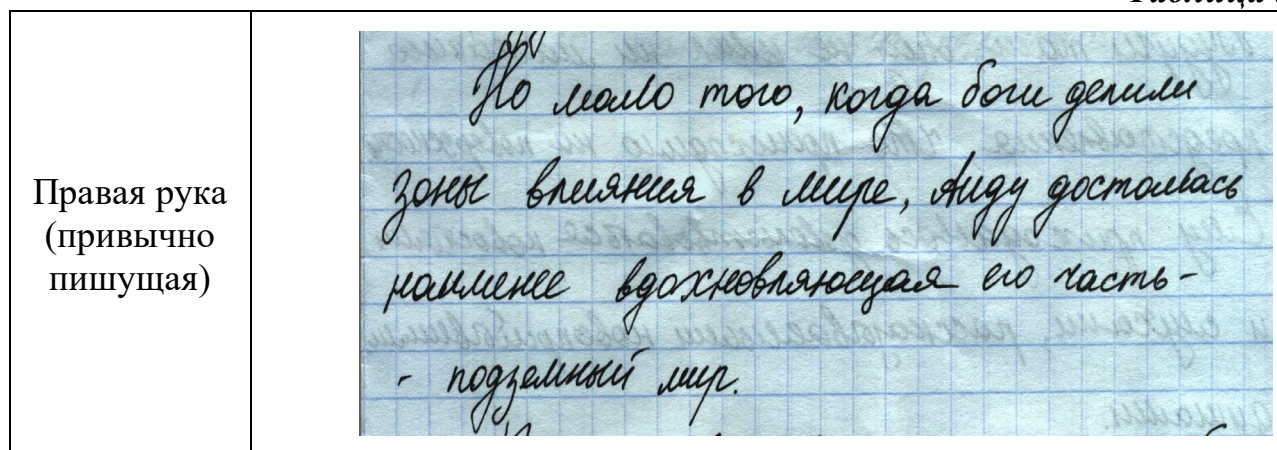 Правая рука
(привычно
пишущая)
Но мало того, когда боги делили
зоны влияния в мире, Аиду досталась
наименее вдохновляющая его часть -
- подземный мир.